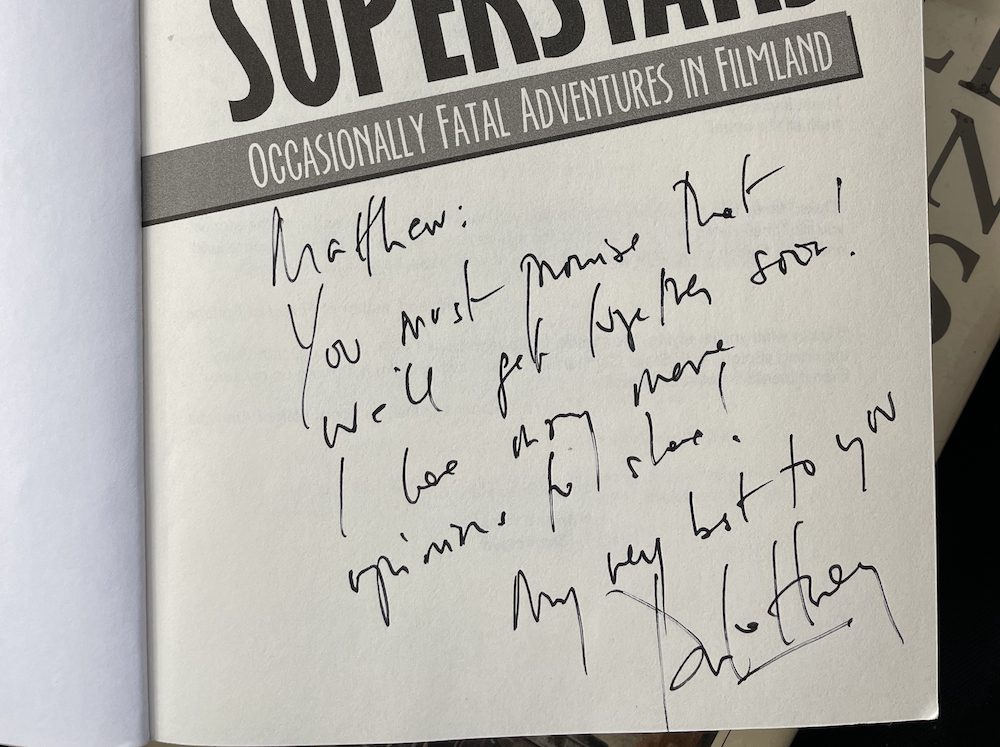 SUPERSTARS
OCCASIONALLY FATAL ADVENTURES IN FILMLAND
Matthew:
You must promise that
we'll get together soon!
I have many many
opinions to share.
My very best to you